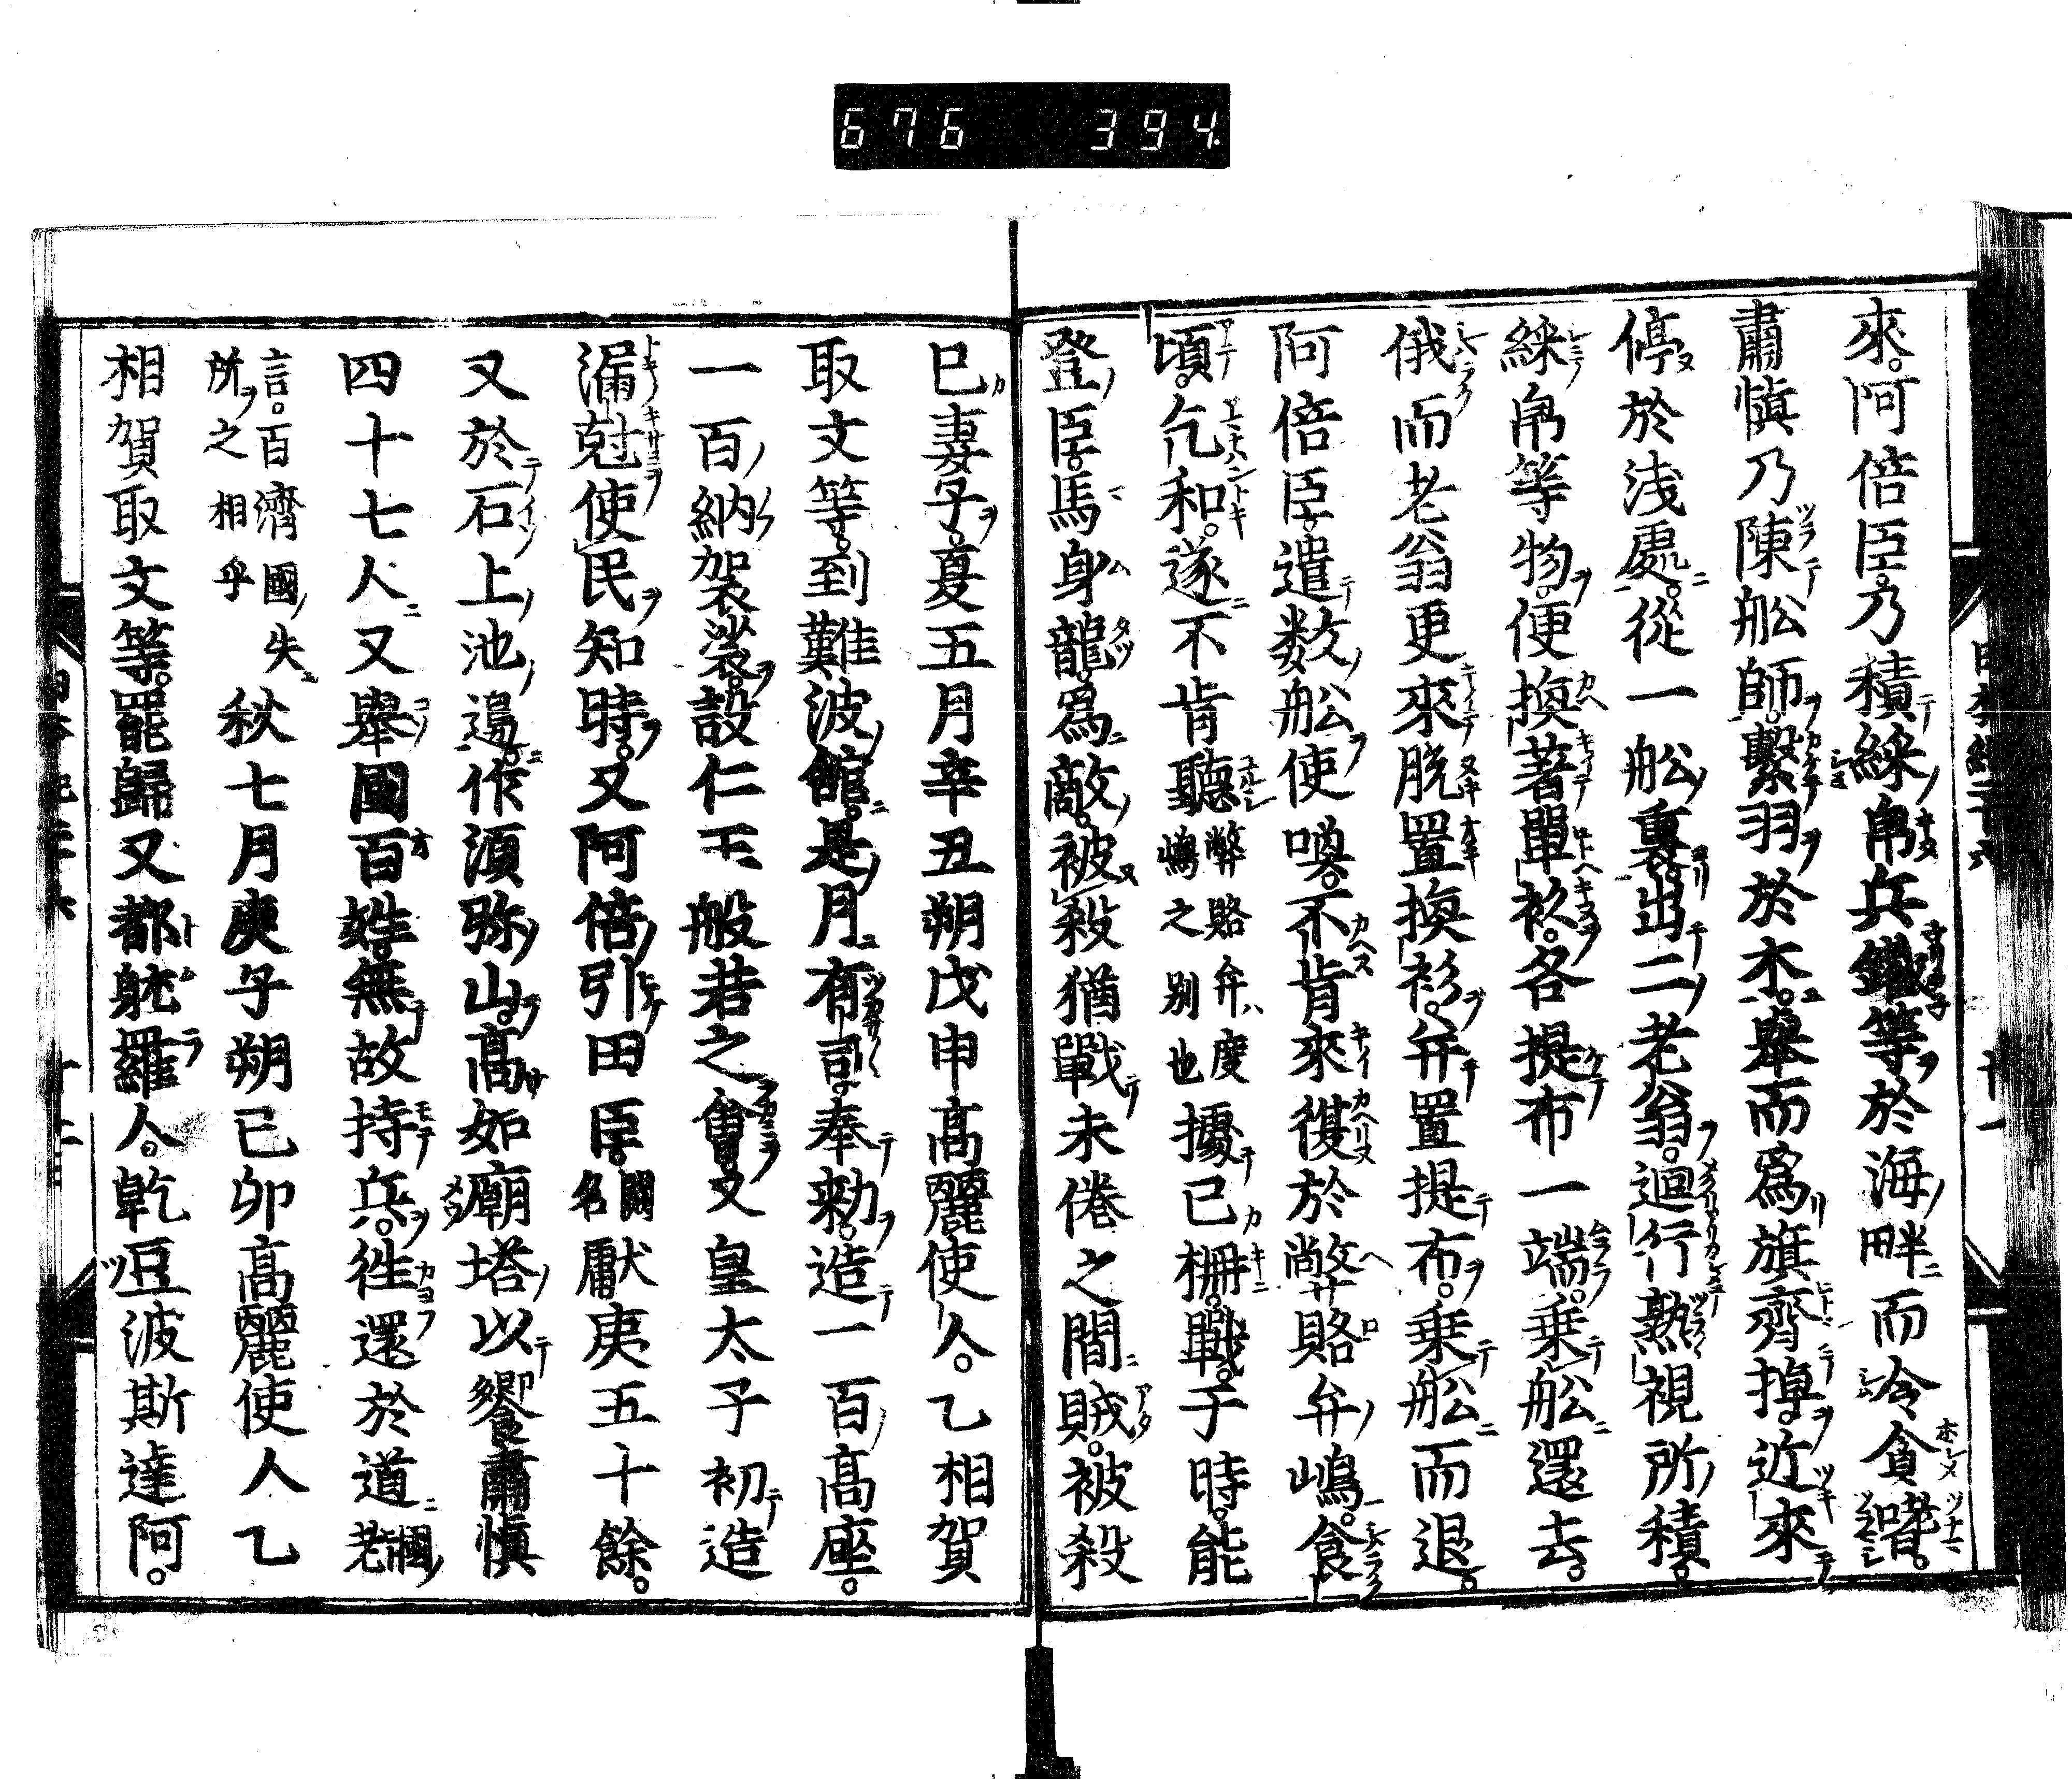 676 394.
來。阿倍臣。乃積綵帛兵鐵等於海畔而冷貪嗜。
肅愼乃陳舩師。繫羽於木。擧而爲旗。齊掉。近來
停於浅處。從一舩裏。出二老翁。迴行熟視所積。
綵帛等物。便換著單衫。各提布一端。乗舩還去。
俄而老翁更來脱置換衫。幷置提布。乗舩而退。
阿倍臣。遣数舩使喚。不肯來復於弊賂弁嶋。食
頃。乞和。遂不肯聽弊賂弁度嶋之別也據己柵。戰。于時。能
登臣。馬身龍。爲敵。被殺猶戰未倦之間賊。被殺
己妻子。夏五月辛丑朔戊申髙麗使人。乙相賀
取文等。到難波館。是月有司。奉勅。造一百髙座。
一百納袈裟。設仁王般若之會。又皇太子初造
漏尅使民知時。又阿倍引田臣。闕名獻夷五十餘。
又於石上池邉。作須弥山。髙如廟塔以饗肅愼
四十七人又擧國百姓。無故持兵。徃還於道國老
言。百濟國失所之相乎秋七月庚子朔己夘髙麗使人乙
相賀取文等。罷歸又都䏲羅人。乾豆波斯達阿。